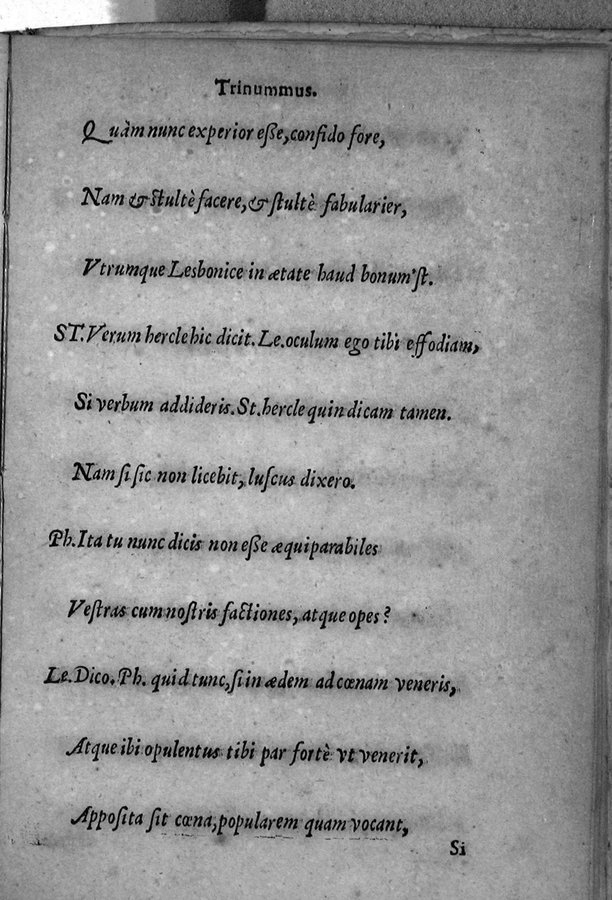 Trinummus.
Quàm nunc experior eße, confido fore,
Nam & ſtultè facere, & ſtultè fabularier,
Vtrumque Lesbonice in ætate haud bonum'ſt.
ST. Verum hercle hic dicit. Le. oculum ego tibi effodiam,
Si verbum addideris. St. hercle quin dicam tamen.
Nam ſi ſic non licebit, luſcus dixero.
Ph. Ita tu nunc dicis non eße æquiparabiles
Veſtras cum noſtris factiones, atque opes?
Le. Dico. Ph. quid tunc, ſi in ædem ad cœnam veneris,
Atque ibi opulentus tibi par fortè vt venerit,
Appoſita ſit cœna, popularem quam vocant,
Si